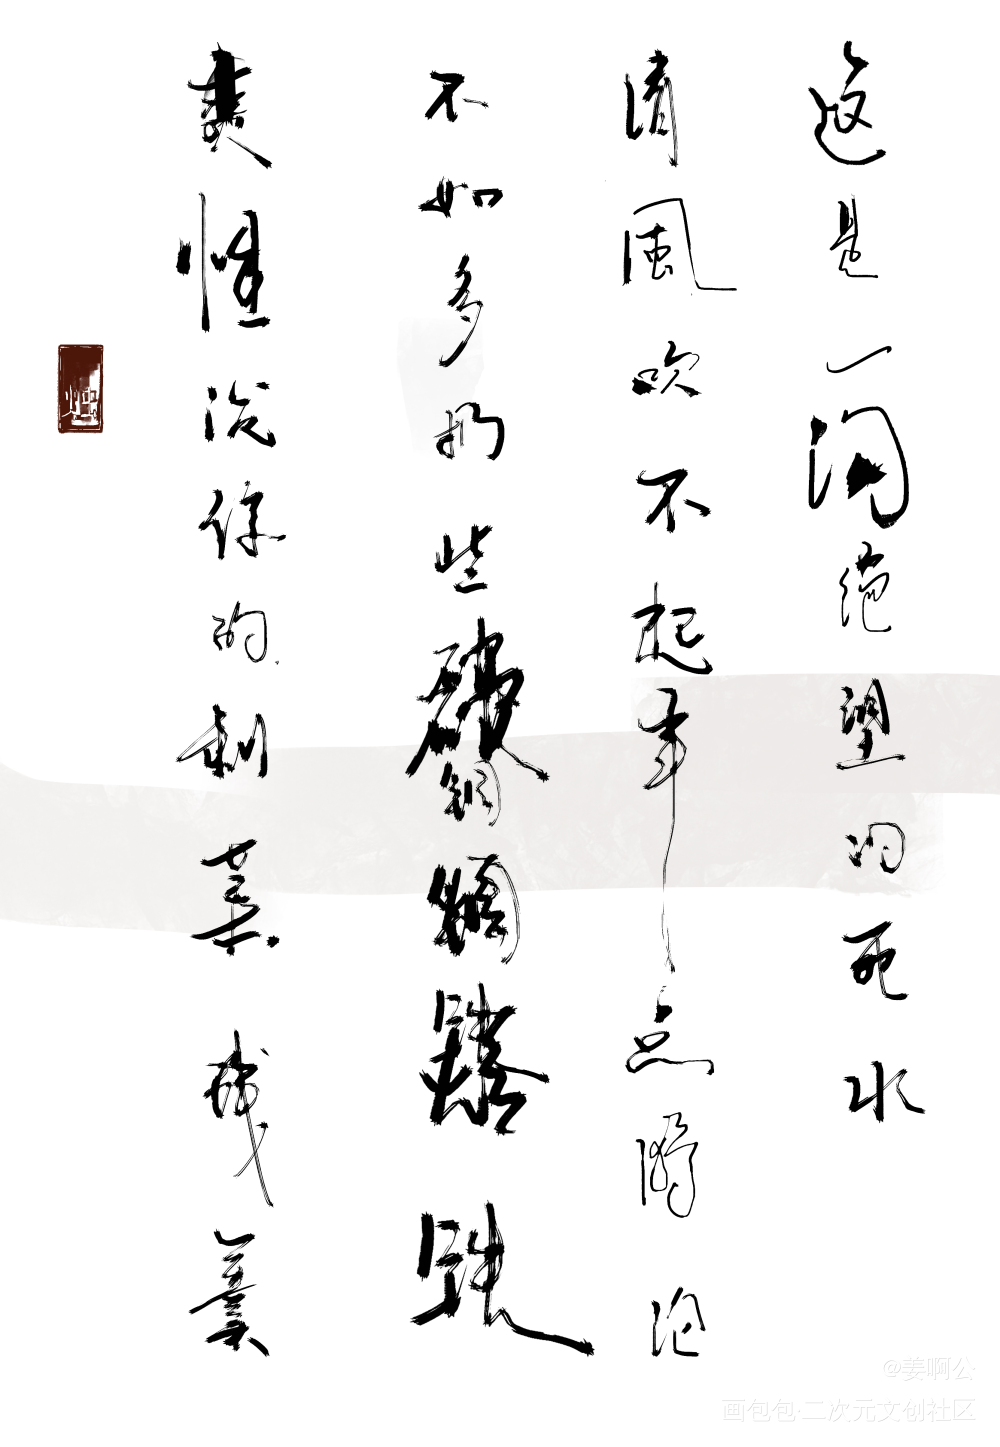 这是一沟绝望的死水
清風吹不起半点漪沦
不如多扔些破铜烂铁
爽性泼你的剩菜残羹
@姜啊公
画包包·二次元文创社区